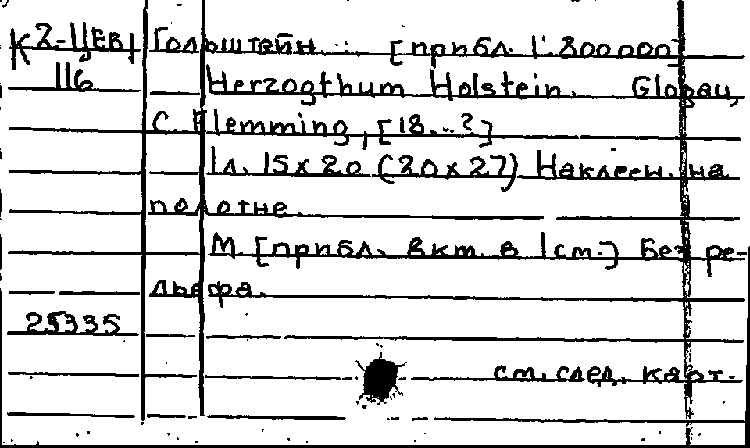 К2-ЦЕВ1 Гольштейн : [прибл. 1:800000]
116 Herzogthum Holstein. Glogau,
C. Flemming, [18...?]
1л. 15x20 (20x27) Наклеен. на
полотне.
М. [прибл. 8 км. в 1 см.] Без ре-
льефа.
25335
см. след. карт.